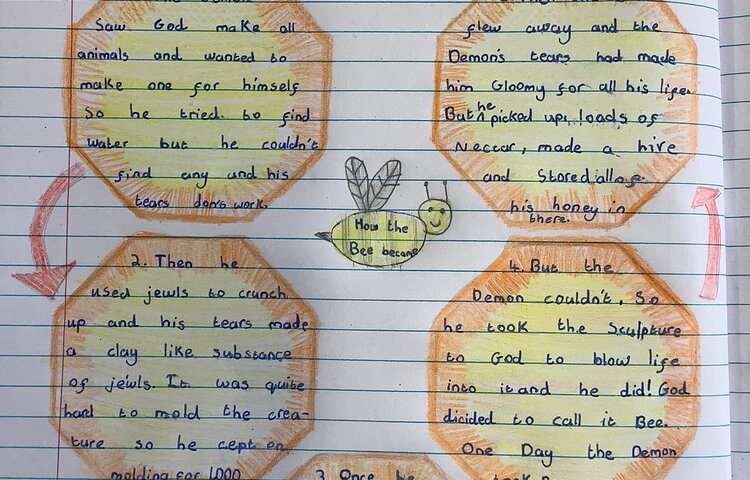 Saw God make all
animals and wanted to
make one for himself
So he tried to find
water but he couldn't
find any and his
tears don's work.
2. Then he
used jewls to crunch
up and his tears made
a clay like substance
of jewls. It was quite
hard to mold the crea-
ture so he cept on
molding for 1,000
3. Once he
How the
Bee became
4. But the
Demon couldn't. So
he took the Sculpture
to God to blow life
into it and he did! God
dicided to call it Bee.
One Day the Demon
flew away and the
Demon's tears had made
him Gloomy for all his life.
But he picked up loads of
Nectar, made a hive
and Stored all of
his honey in
there.